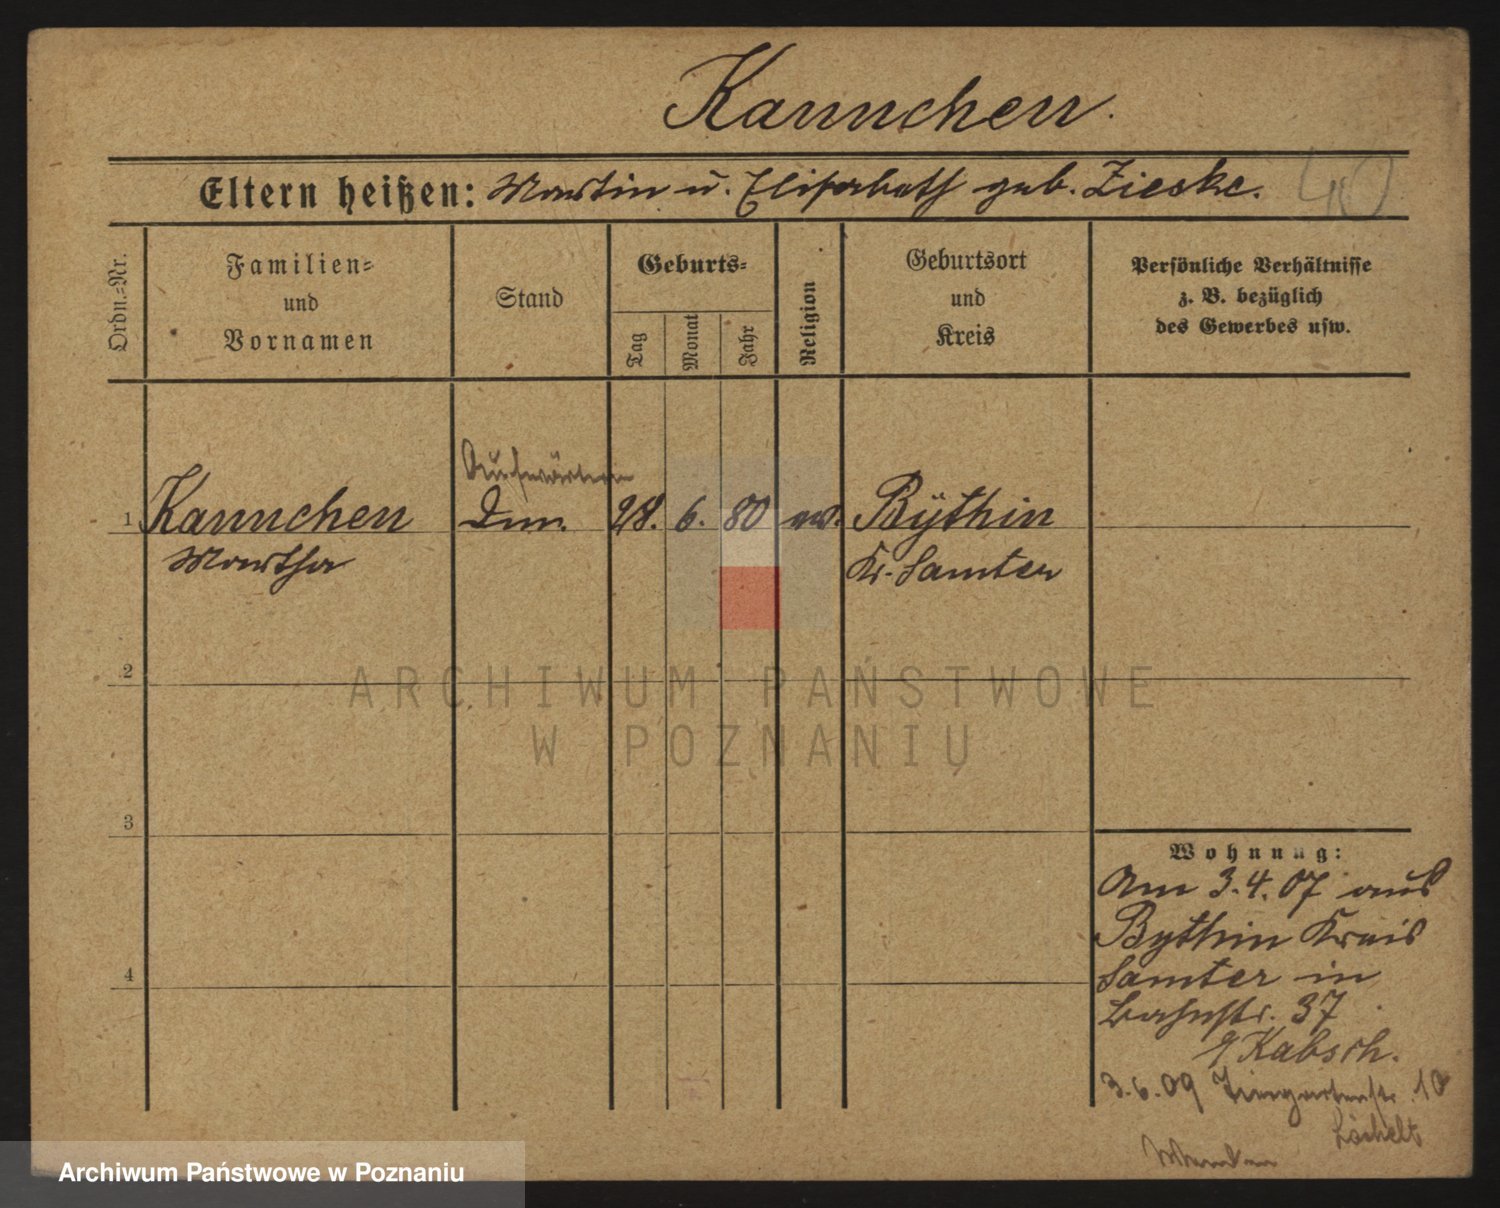 Kannchen.
Eltern heißen: Martin u. Elisabeth geb. Zieske.
Ordn.-Nr.
Familien-
und
Vornamen
Stand
Geburts-
Tag
Monat
Jahr
Religion
Geburtsort
und
Kreis
Persönliche Verhältnisse
z. B. bezüglich
des Gewerbes usw.
Aufwärterin
1 Kannchen 28. 6. 80 ev. Bythin
Martha Kr. Samter
2
ARCHIWUM PAŃSTWOWE
W POZNANIU
3
Wohnung:
Am 3.4.07 aus
Bythin Kreis
Samter in
Bahnstr. 37
Kabsch.
4
3.6.09 Tiergartenstr. 10
Archiwum Państwowe w Poznaniu